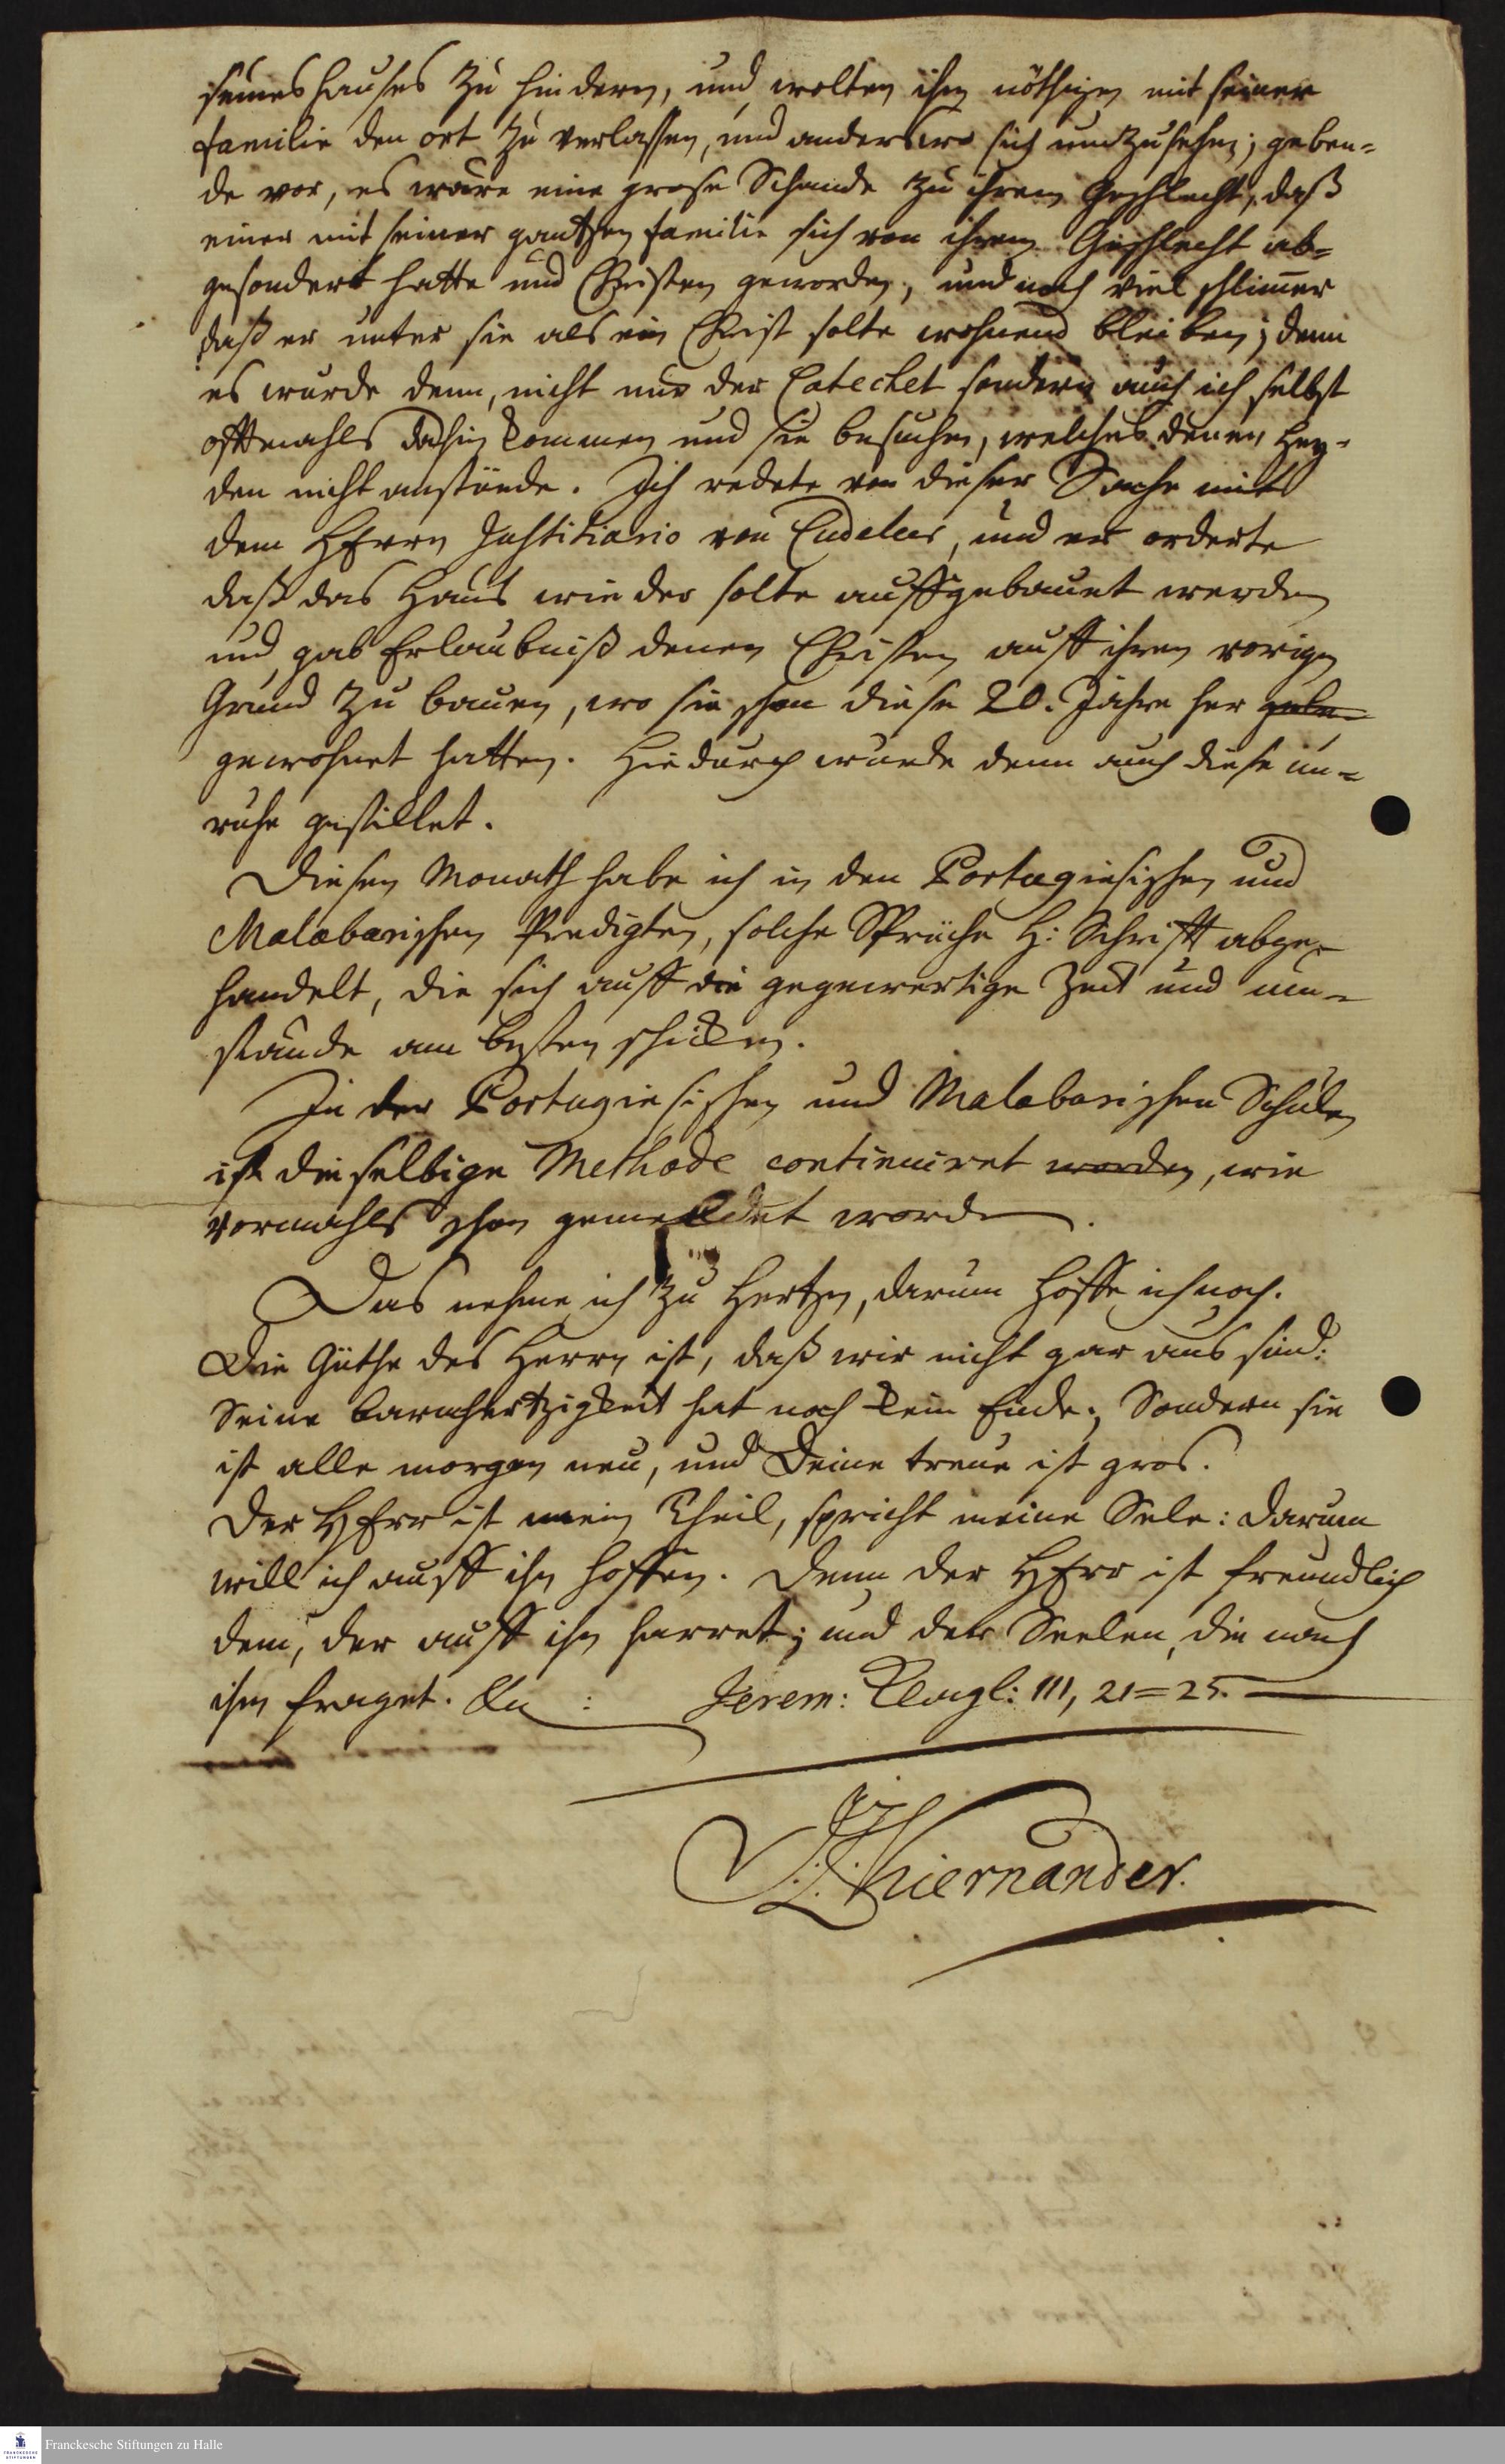 seines hauses zu hindern, und wolten ihn nöthigen mit seiner
familie den ort zu verlassen, und anderswo sich umzusehen; geben=
de vor, es wäre eine grose Schande zu ihrem Geschlecht, daß
einer mit seiner gantzen familie sich von ihrem Geschlecht ab=
gesondert hatte und Christen geworden, und noch viel schlim̄er
daß er unter sie als ein Christ solte wohnend bleiben; denn
es wurde denn, nicht nur der Catechet sondern auch ich selbst
offtmahls dahin kommen und sie besuchen, welches denen Hey=
den nicht anstünde. Ich redete von dieser Sache mit
dem HErrn Justitiario von Cudelur, und er orderte
daß das Haus wieder solte auffgebauet werden
und gab Erlaubniß denen Christen auff ihren vorigen
Grund zu bauen, wo sie schon diese 20. Jahre her
gewohnet hatten. Hiedurch wurde denn auch diese un=
ruhe gestillet.
Diesen Monath habe ich in den Portugiesischen und
Malabarischen Predigten, solche Sprüche H: Schrifft abge=
handelt, die sich auff die gegenwertige Zeit und um=
stände am besten schicken.
In der Portugiesischen und Malabarischen Schulen
ist dieselbige Methode continuiret worden, wie
vormahls schon gemeldet worden.
Das nehme ich zu Hertzen, darum hoffe ich noch.
Die Güthe des Herrn ist, daß wir nicht gar aus sind:
Seine barmhertzigkeit hat noch kein Ende; Sondern sie
ist alle morgen neu, und Deine treue ist gros.
Der HErr ist mein Theil, spricht meine Sele: darum
will ich auff ihn hoffen. Denn der HErr ist freundlich
dem, der auff ihn harret; und der Seelen, die nach
ihm fraget. Jerem: Klagl: III, 21=25.
J: Z: Kiernander.
Franckesche Stiftungen zu Halle